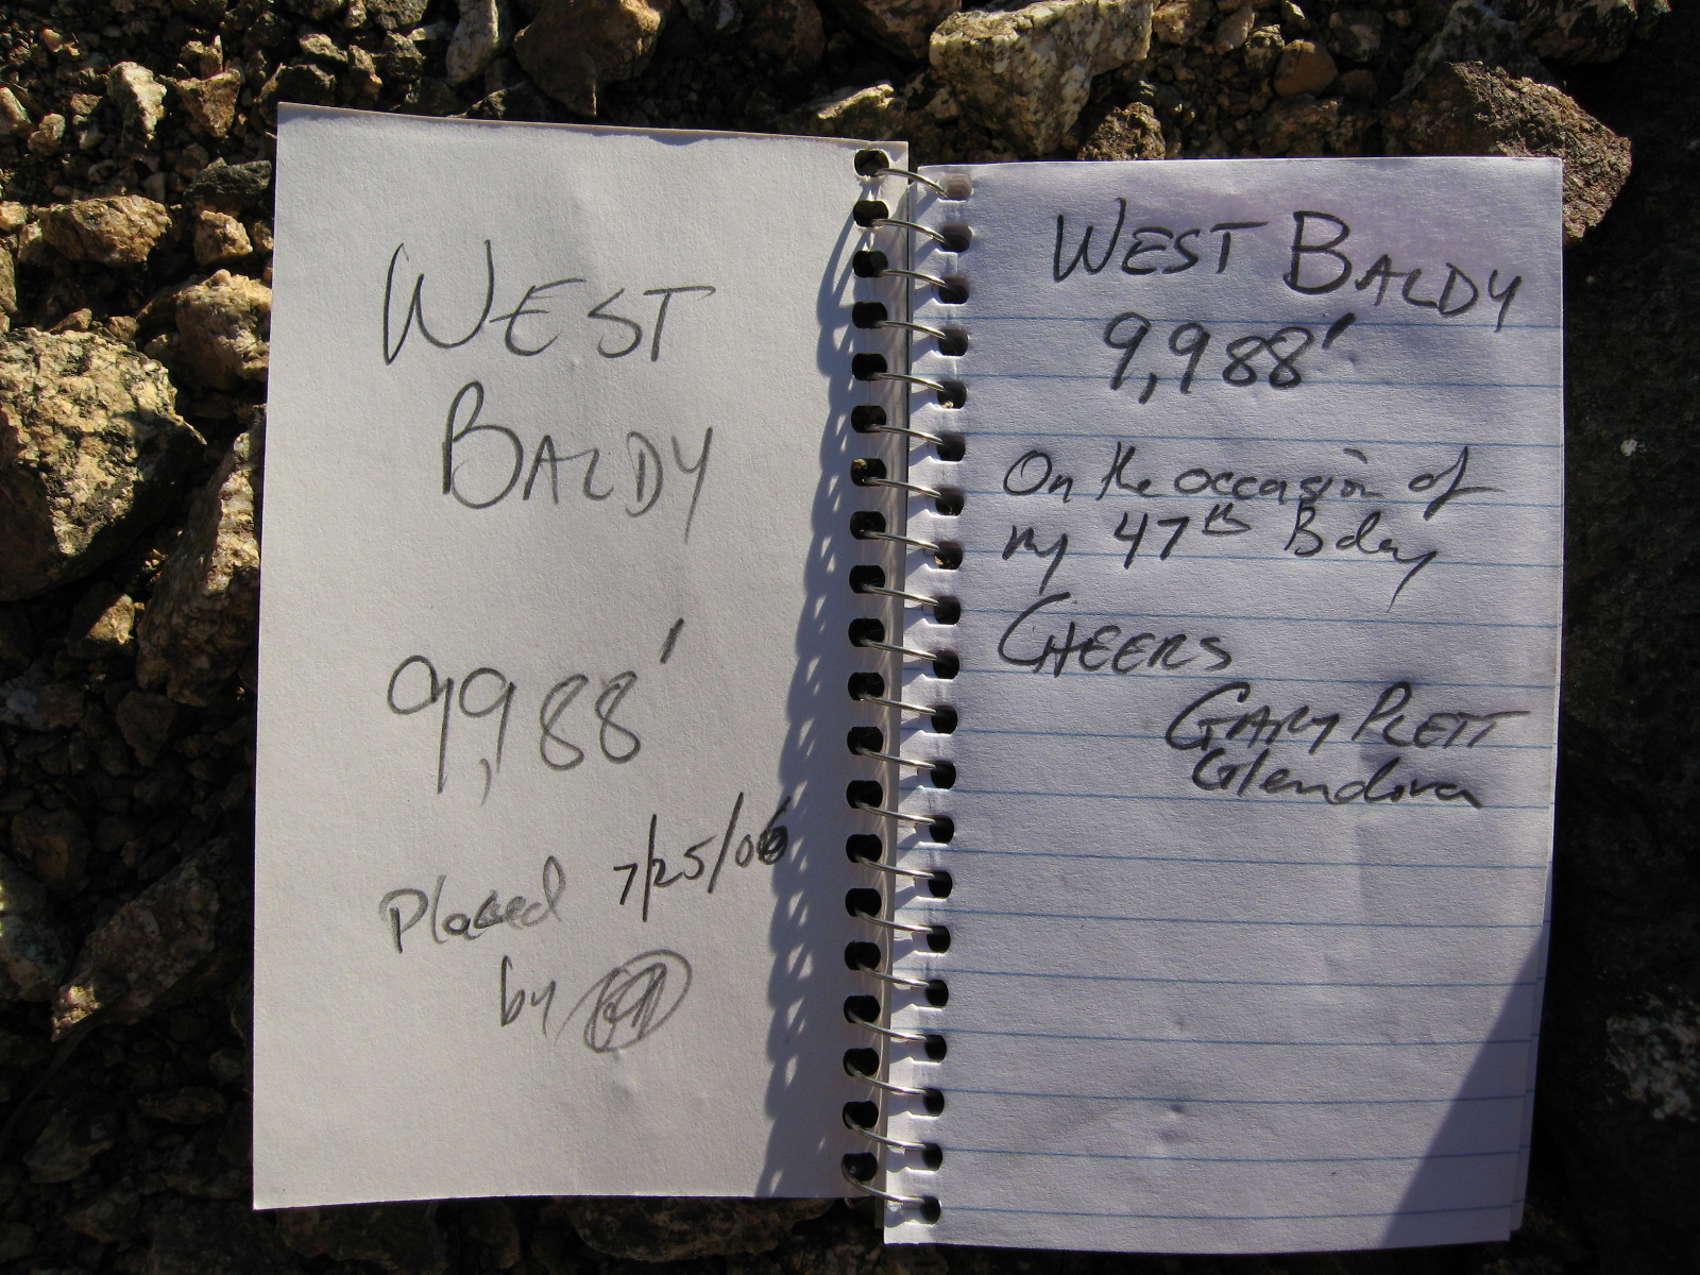 WEST
BALDY
9,988'
Placed 7/25/06
by
WEST BALDY
9,988'
On the occasion of
my 47th Bday
CHEERS
GARY PLETT
Glendora